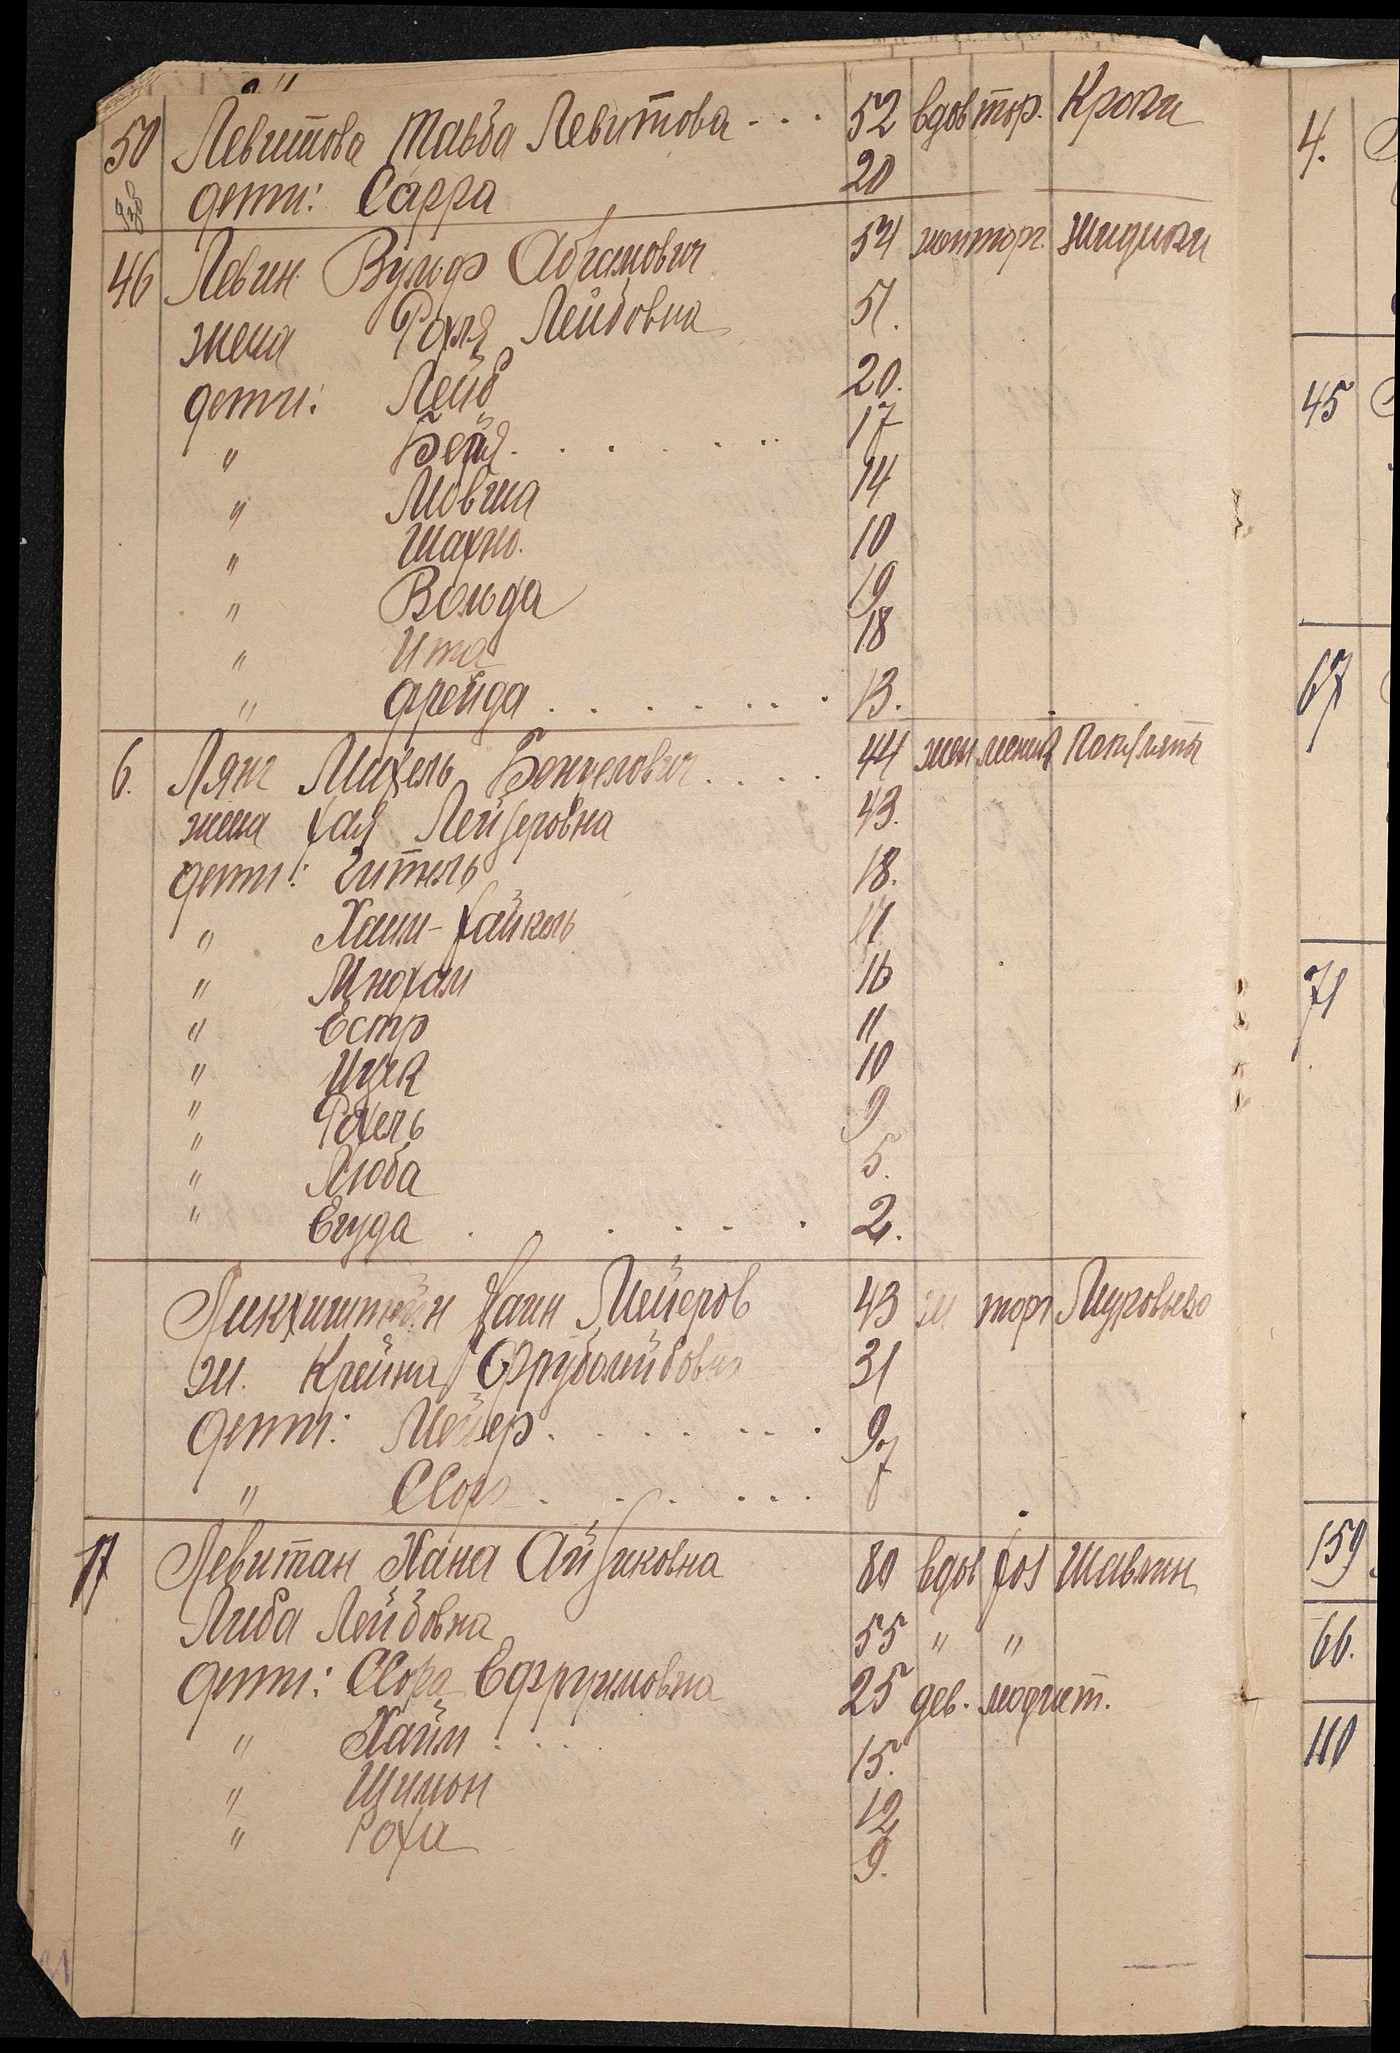 50 Левитова Тавба Левитова - - - 52 вдов тор. Кроки
дети: Сарра 20
46 Левин Вульф Абрамович 54 жен торг. Жидики
жена Рохля Лейбовна 51.
дети: Лейб 20.
" Бейя . . . . . . 17
" Мовша 14
" Шахно. 10
" Вольда 19
" Ита 18
" Фрейда . . . . . . . 13.
6. Лянг Михель Бенч 44 жен
жена Хая Лейзеровна 43.
дети: Гитель 18.
" Хаим-Файкель 17
" Мнохам 16
" Естр 11
" Ицик 10
" Рохель 9
" Люба 5.
" Егуда . . . . . . 2.
Хаим Мейеров 43 ж торг
ж. Крейна 31
дети: Мейер . . . . . . . 9
" Сора . . . . . . 7
17 Левитан Хана Айзиковна 80 вдов хоз Шавлин
Либа Лейбовна 55 " "
дети: Сора Ефруимовна 25 дев. модист.
" Хаим . . . . 15.
" Шимон 12
" Роха 9.
4.
45
67
71
159
66.
110